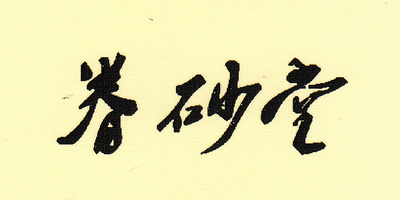 眷砂堂